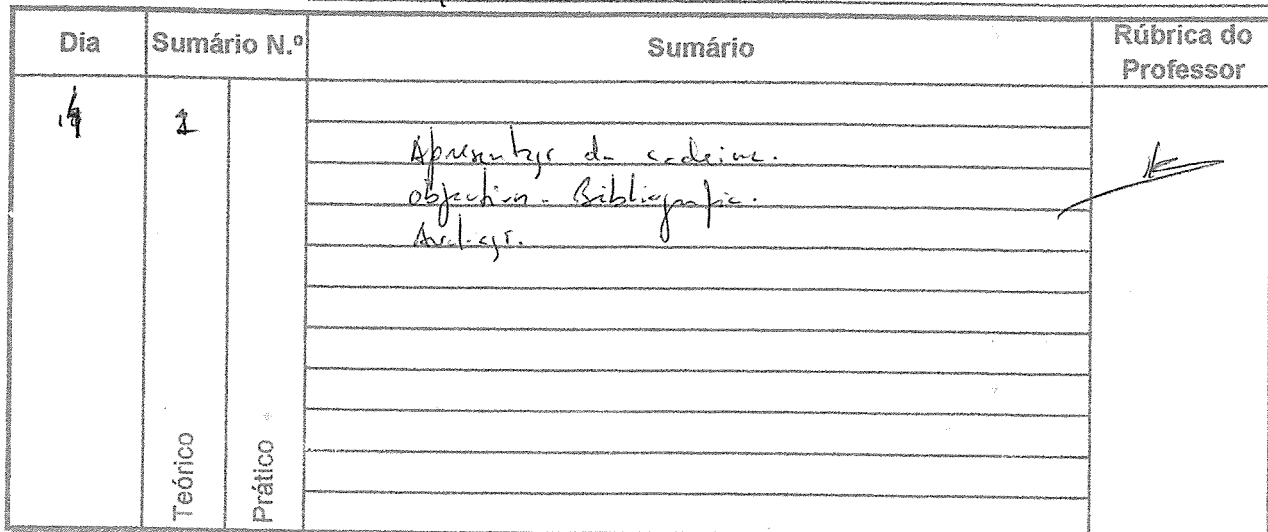 Dia Sumário N.º Sumário Rúbrica do Professor
1
Apresentação da cadeira.
Objectivos. Bibliografia.
Avaliação.
Teórico Prático